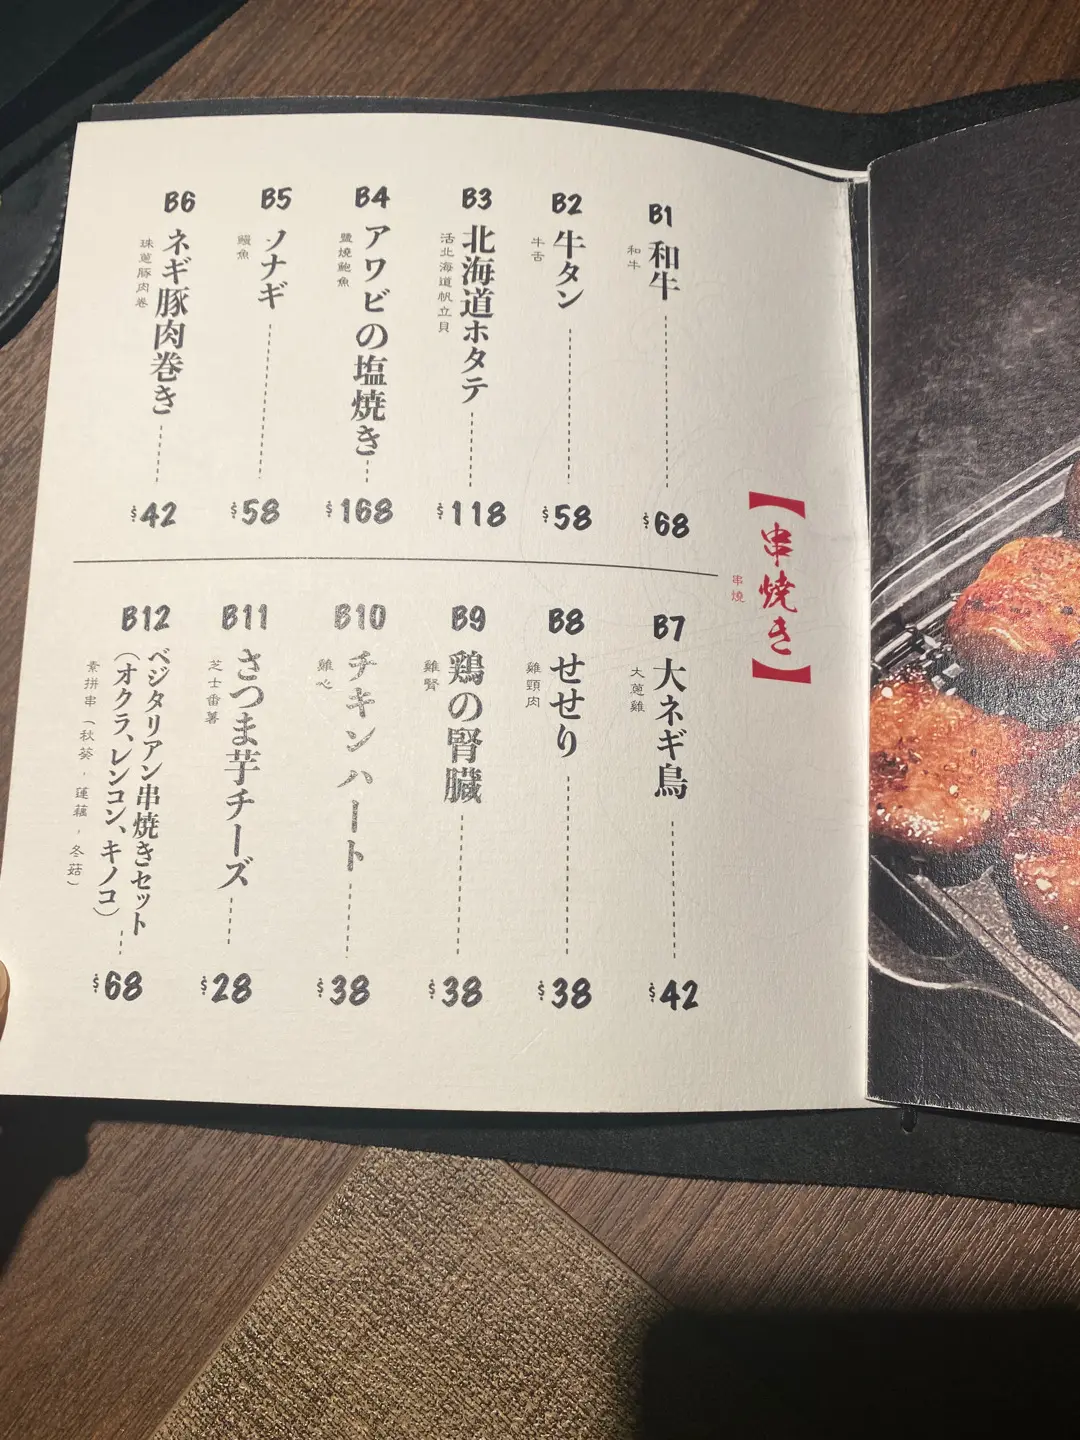 【串焼き】
串燒
B1
和牛
和牛
$68
B2
牛タン
牛舌
$58
B3
北海道ホタテ
活北海道帆立貝
$118
B4
アワビの塩焼き
鹽燒鮑魚
$168
B5
ソナギ
鰻魚
$58
B6
ネギ豚肉巻き
珠蔥豚肉卷
$42
B7
大ネギ鳥
大蔥雞
$42
B8
せせり
雞頸肉
$38
B9
鶏の腎臓
雞腎
$38
B10
チキンハート
雞心
$38
B11
さつま芋チーズ
芝士番薯
$28
B12
ベジタリアン串焼きセット
（オクラ、レンコン、キノコ）
素拼串（秋葵，蓮藕，冬菇）
$68